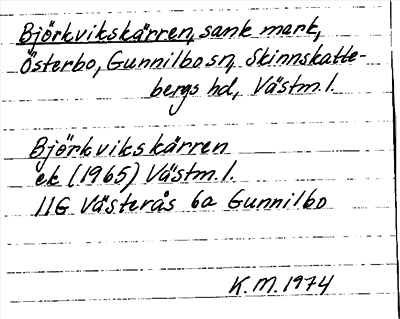 Björkvikskärren, sank mark,
Österbo, Gunnilbo sn, Skinnskatte-
bergs hd, Västm. l.
Björkvikskärren
ek (1965) Västm. l.
11G Västerås 6a Gunnilbo
K.M. 1974